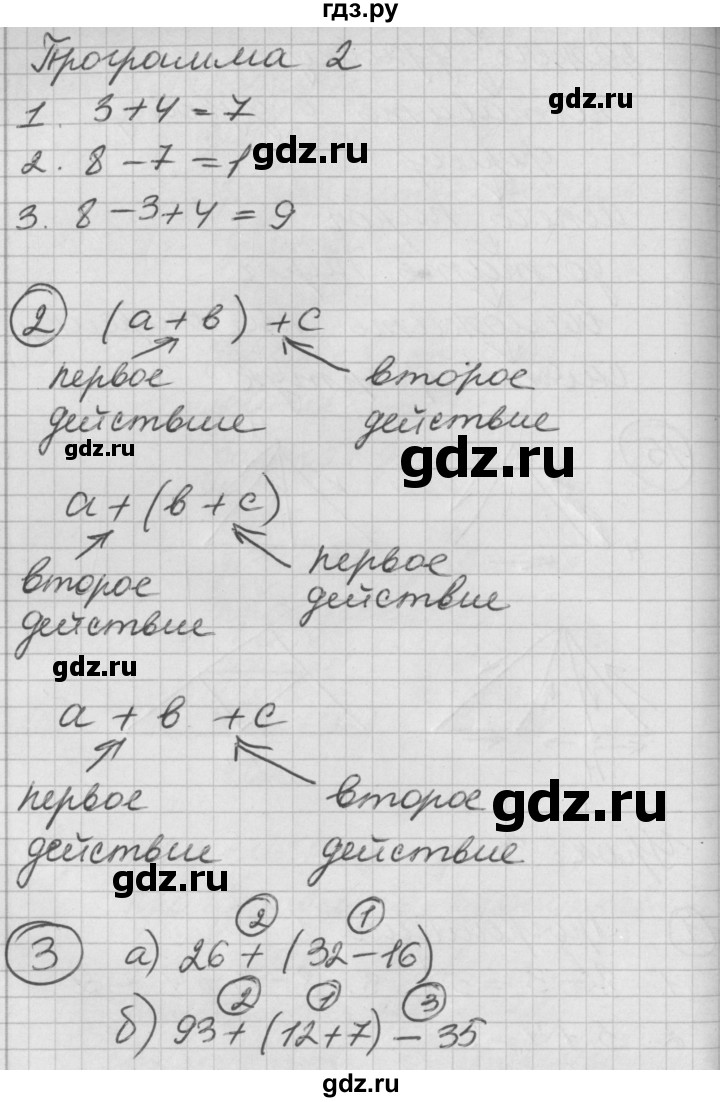 гдз.ру
Программа 2
gdz.ru
1. 3+4=7
2. 8-7=1
gdz.ru
3. 8-3+4=9
gdz.ru
2 (а+в)+с
первое действие
второе действие
gdz.ru
gdz.ru
а+(в+с)
второе действие
первое действие
gdz.ru
а+в+с
первое действие
второе действие
gdz.ru
gdz.ru
2 1
3 а) 26+(32-16)
2 1 3
б) 93+(12+7)-35
gdz.ru